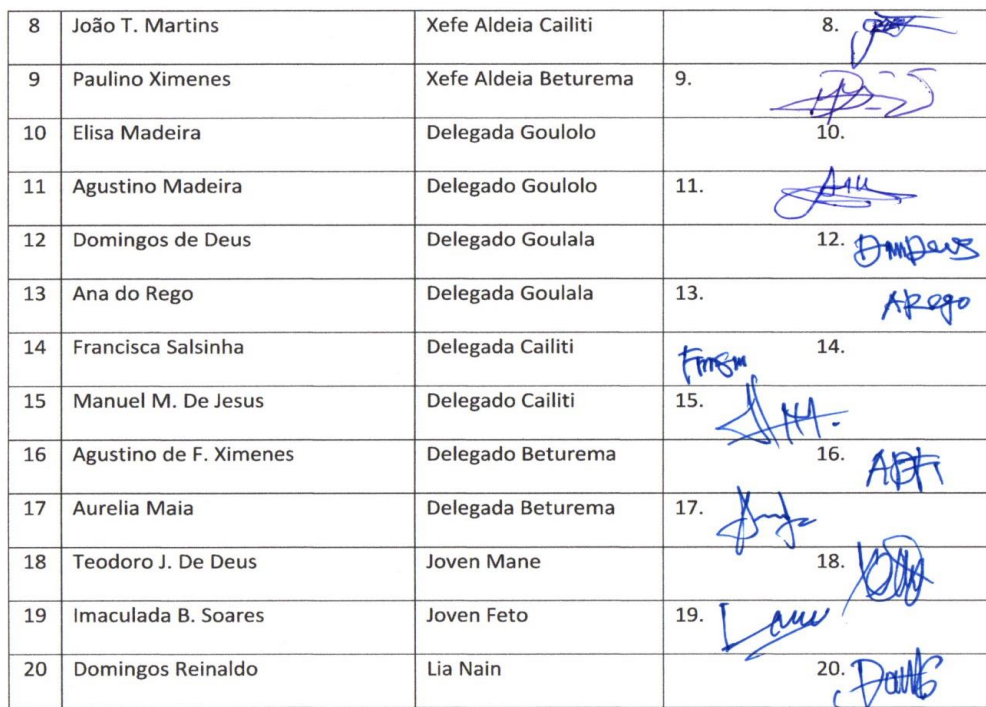 8 João T. Martins Xefe Aldeia Cailiti 8.
9 Paulino Ximenes Xefe Aldeia Beturema 9.
10 Elisa Madeira Delegada Goulolo 10.
11 Agustino Madeira Delegado Goulolo 11.
12 Domingos de Deus Delegado Goulala 12. DmDeus
13 Ana do Rego Delegada Goulala 13. ARego
14 Francisca Salsinha Delegada Cailiti 14.
15 Manuel M. De Jesus Delegado Cailiti 15.
16 Agustino de F. Ximenes Delegado Beturema 16.
17 Aurelia Maia Delegada Beturema 17.
18 Teodoro J. De Deus Joven Mane 18.
19 Imaculada B. Soares Joven Feto 19.
20 Domingos Reinaldo Lia Nain 20.